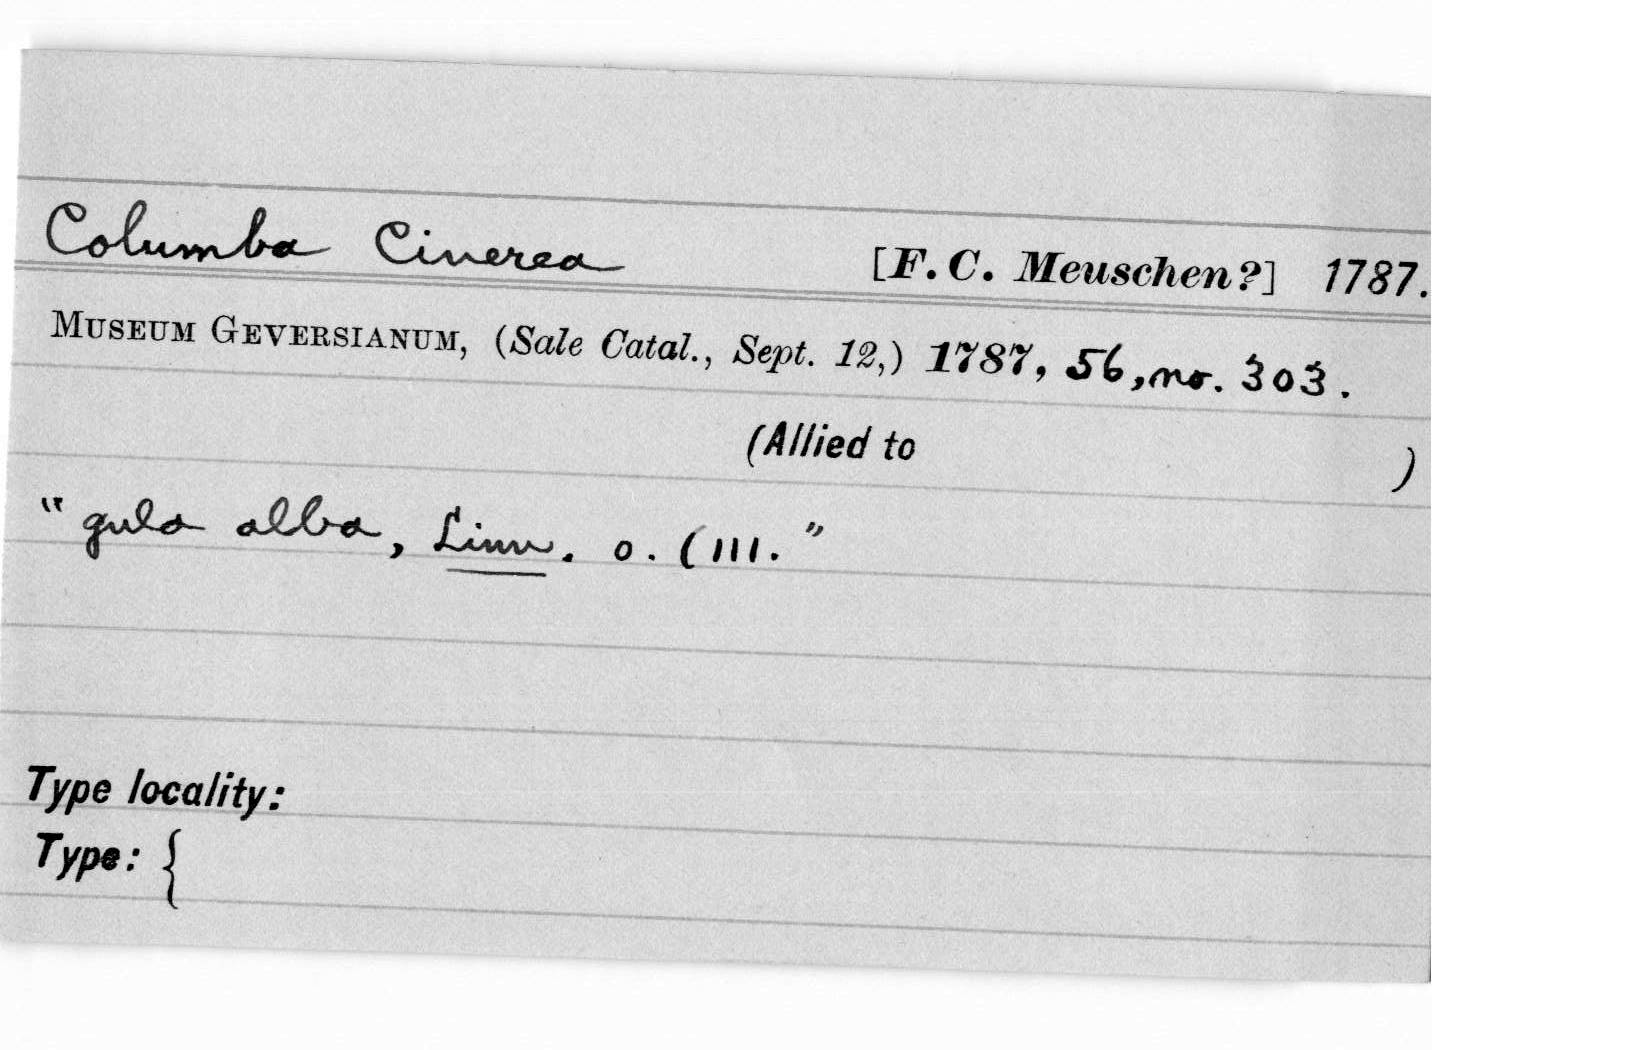 Columba Cinerea [F. C. Meuschen?] 1787.
MUSEUM GEVERSIANUM, (Sale Catal., Sept. 12,) 1787, 56, no. 303.
(Allied to )
" gula alba, Linn. o. (111. "
Type locality:
Type: {